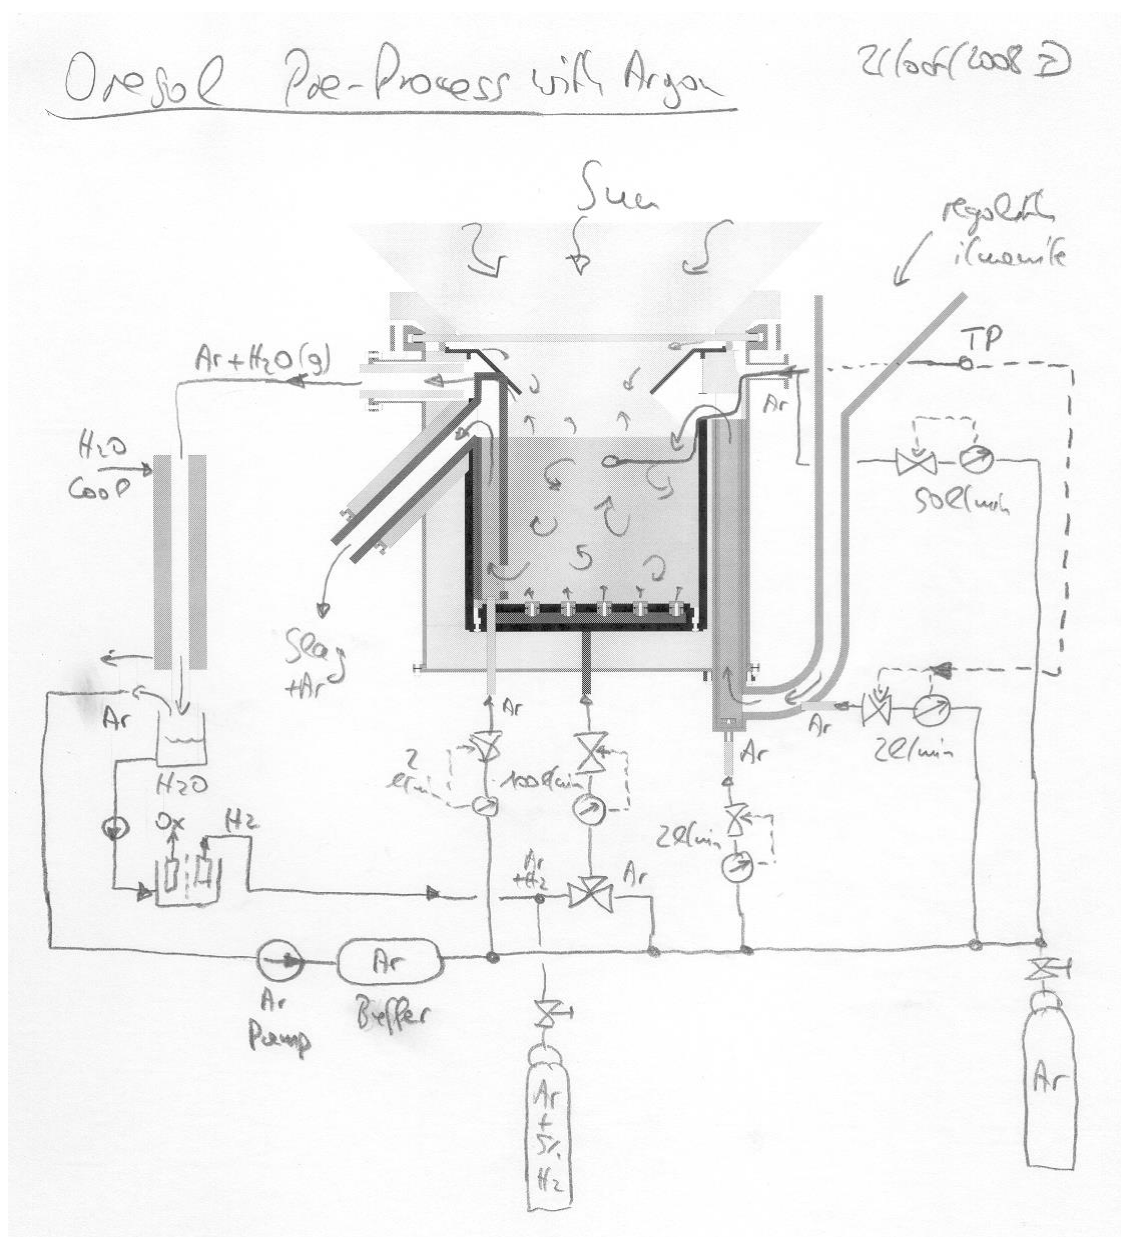 Oresol Pre-Process with Argon
21/oct/2008
Sun
regolith
ilmenite
TP
Ar+H2O(g)
Ar
H2O
Cool
50l/min
Slag
+Ar
Ar
Ar
Ar
Ar
2l/min
2
l/min
100l/min
H2O
Ox
H2
2l/min
Ar
+H2
Ar
Ar
Ar
Pump
Buffer
Ar
+
5%
H2
Ar